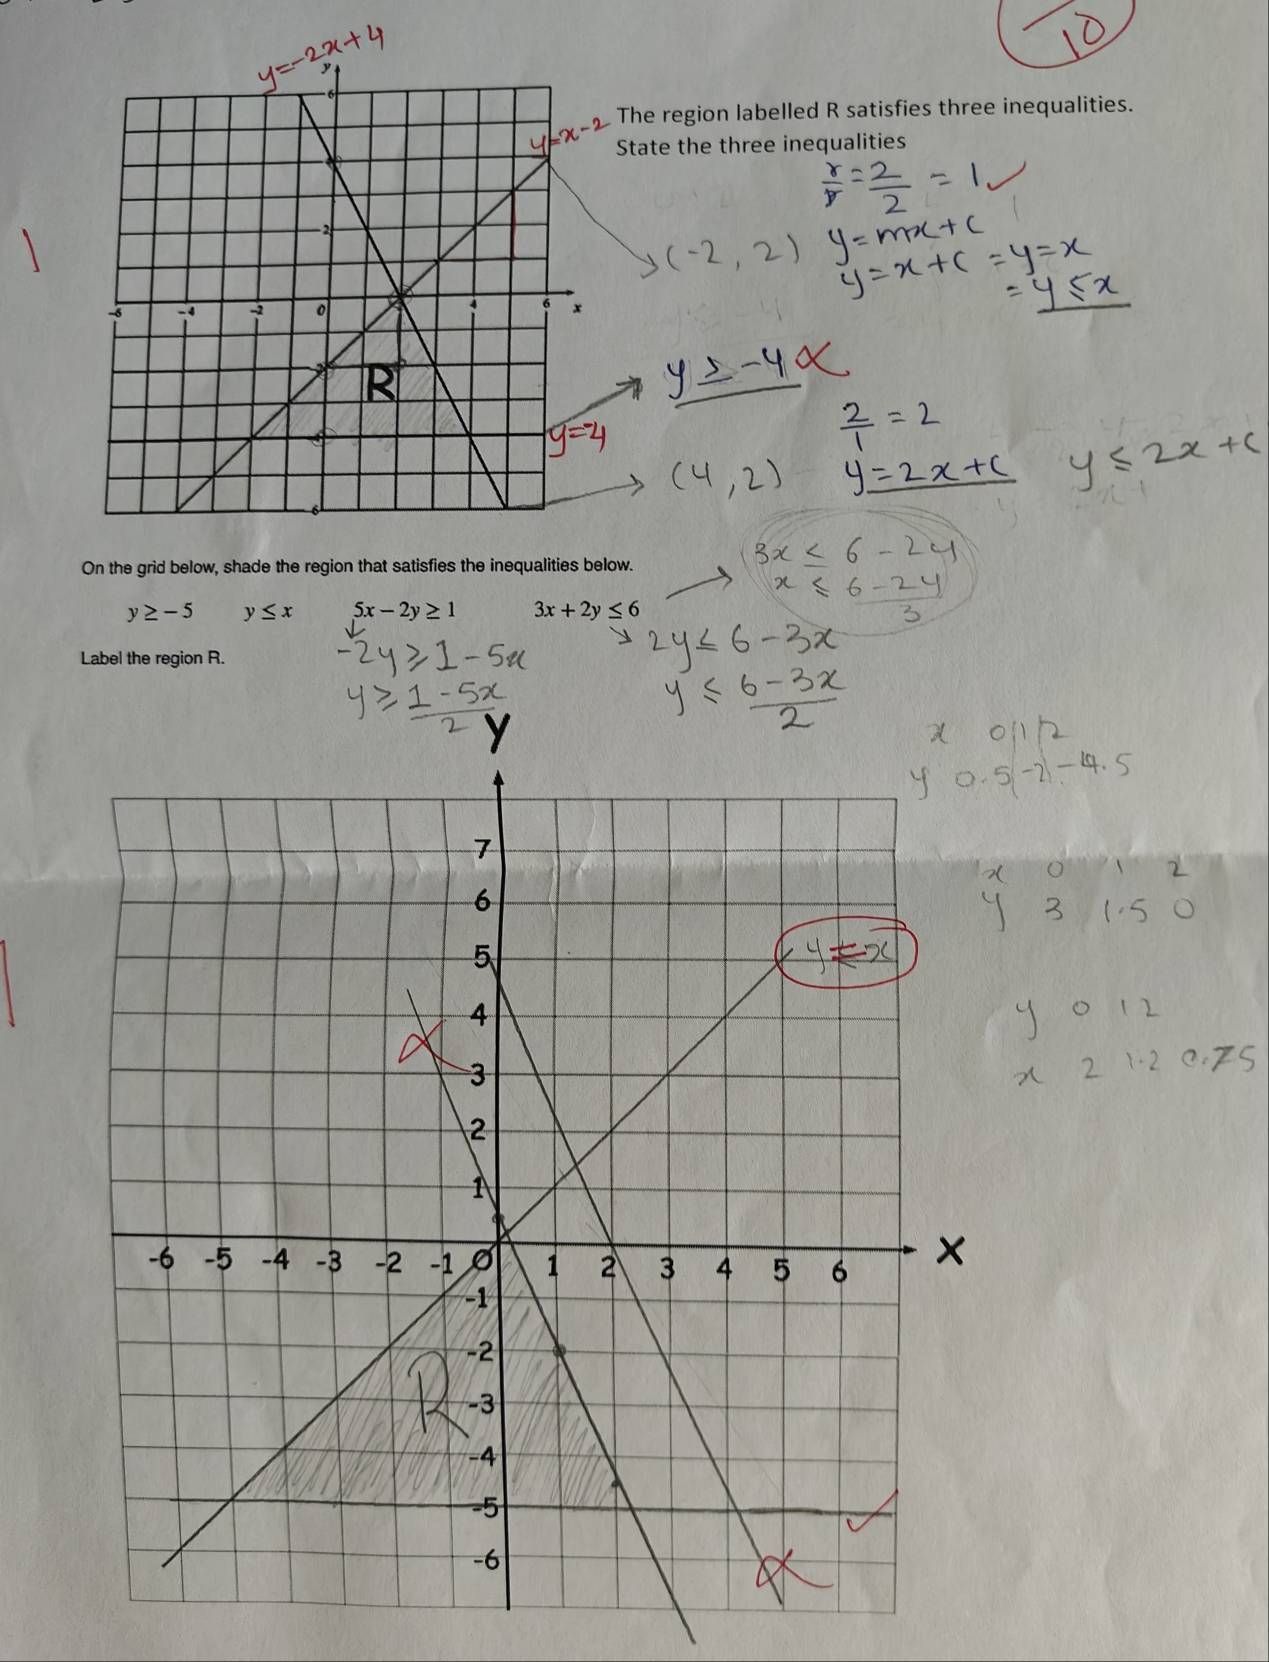 10
y=-2x+4
y
6
The region labelled R satisfies three inequalities.
y=x-2
State the three inequalities
= 2/2 = 1 ✓
1
2
(-2, 2) y=mx+c
y=x+c = y=x
= y≤x
-6 -4 -2 0 4 6 x
y≥-4
R
2/1 = 2
y=-4
(4,2) y=2x+c y≤2x+c
-6
On the grid below, shade the region that satisfies the inequalities below.
3x ≤ 6-2y
x ≤ 6-2y/3
y ≥ – 5 y ≤ x 5x – 2y ≥ 1 3x + 2y ≤ 6
Label the region R.
-2y ≥ 1-5x
2y ≤ 6-3x
y ≥ 1-5x/2
y ≤ 6-3x/2
Y
x 0 1 2
y 0.5 -2 -4.5
7
x 0 1 2
6
y 3 1.5 0
5
y=x
1
4
y 0 1 2
3
x 2 1.2 0.75
2
1
-6 -5 -4 -3 -2 -1 0 1 2 3 4 5 6 X
-1
-2
R
-3
-4
-5 ✓
-6